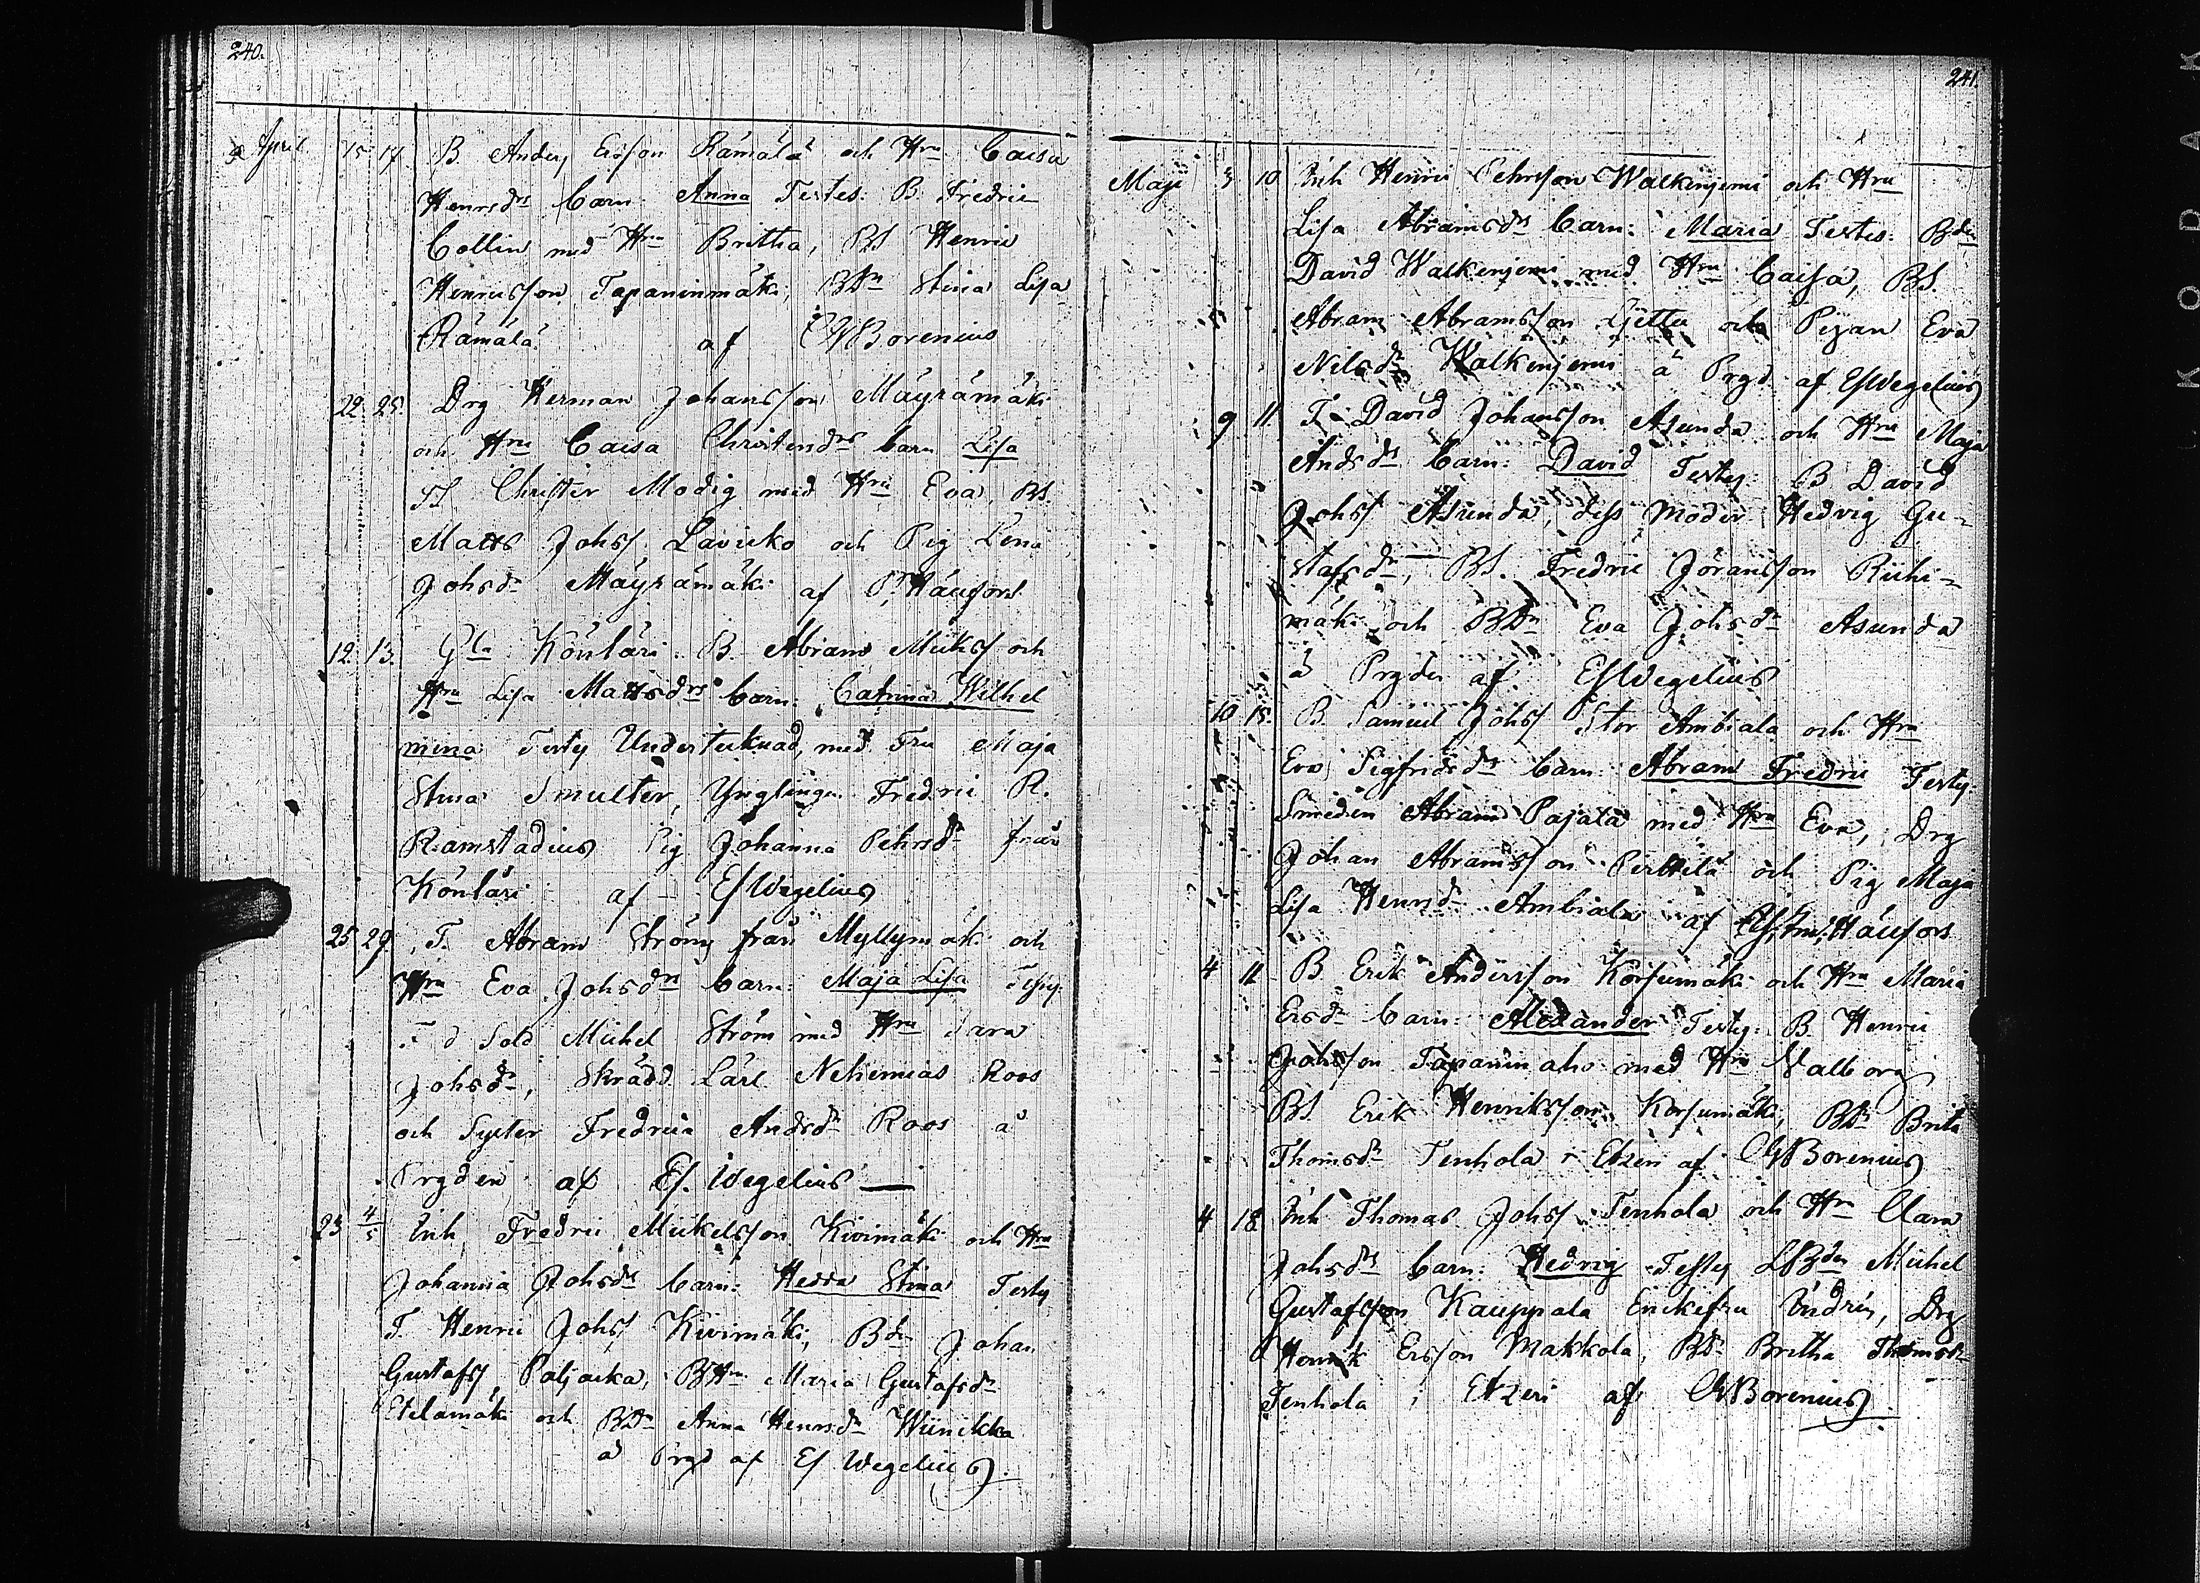 240.
April 15 17. B. Anders Ersson Rämälä och Hru Caisa
Henrsdrs barn: Anna Testes: B. Fredric
Collin med Hru Britha, BS Henric
Henricsson Tapaninmäki, BDr Stina Lisa
Rämälä. af CGBorenius
22. 25. Drg Herman Johansson Mäyrämäki
och Hru Caisa Christersdrs barn Lisa
Christer Modig med Hru Eva, BS.
Matts Johss Lavicko och Pig Lena
Johsdr Mäyrämäki af Häufors
12. 13. Gla Könläri B. Abram Mickss och
Hru Lisa Mattsdrs barn: Catrina Wilhel
mina Testes Undertecknad, med Fru Maja
Stina Smulter, Ynglingen Fredric R.
Ramstadius Pig Johanna Pehrsdr från
Könläri af EfWegelius
25 29. T. Abram Ström från Myllymäki och
Hru Eva Johsdrs barn: Maja Lisa Testes
F d Sold Michel Ström med Hru Sara
Johsdr, Skrädd. Lärl Nehemias Roos
och Syster Fredrica Andsdr Roos å
Prgden af Ef. Wegelius —
23 4/5 Inh Fredric Mickelsson Kivimäki och Hru
Johanna Johsdrs barn: Hedda Stina Testes
T. Henric Johss Kivimäki, Bdn Johan
Gustafss Poljacka, BHru Maria Gustafsdr
Etelämäki och BDr Anna Henrsdr Wiinikka
å Prgd af Ef Wegelius.
241.
Maji 3 10 Inh Henric Pehrsson Walkenjemi och Hru
Lisa Abramsdrs barn: Maria Testes: Bdn
David Walkenjemi med Hru Caisa, BS.
Abram Abramsson och Pigan Eva
Nilsdr Walkenjemi å Prgd. af EfWegelius
9 11. T. David Johansson Asunda och Hru Maja
Andsdrs barn: David Testes: B David
Johss Asunda, dess moder Hedvig Gu-
stafsdr, BS. Fredric Jöransson Riihi-
mäki och BDr Eva Johsdr Asunda
å Prgden af EfWegelius
10 15. B. Samuel Johss Stor Ambiala och Hru
Eva Sigfridsdrs barn Abram Fredric Testes
Smeden Abram Pajala med Hru Eva, Drg
Johan Abramsson Perttilä och Pig Maja
Lisa Henrsdr Ambiala af Häufors
4 11 B Erik Andersson Korsumäki och Hru Maria
Ersdrs barn: Alexander Testes: B. Henric
Johsson Tapanin aho med Hru Valborg
BS Erik Henriksson Korsumäki, BDr Brita
Thomsdr Tenhola i Etzeri af CGBorenius
4 18 Inh Thomas Johss Tenhola och Hru Clara
Johsdrs barn: Hedvig Testes LBdn Michel
Gustafsson Kauppala Enckefru Drg
Henrik Ersson Makkola, BDr Britha Thomsdr
Tenhola i Etzeri af CGBorenius
KODAK